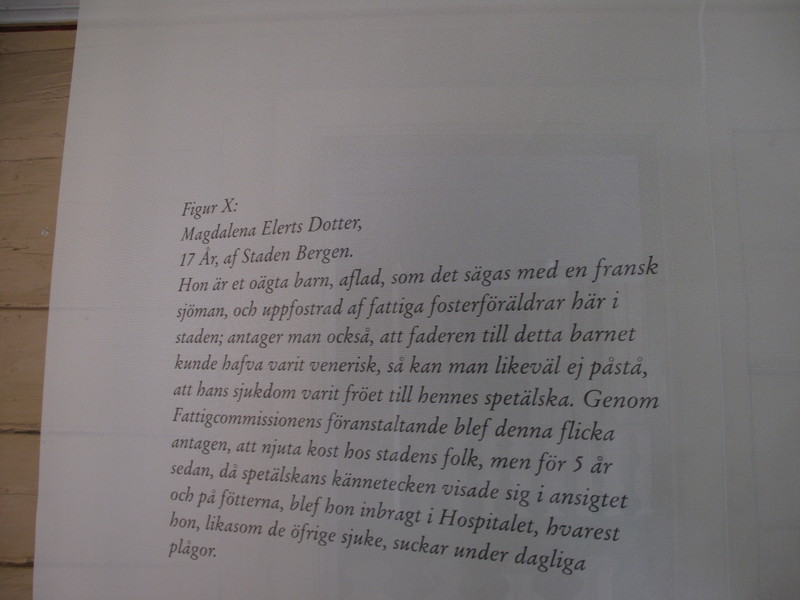 Figur X:
Magdalena Elerts Dotter,
17 År, af Staden Bergen.
Hon är et oägta barn, aflad, som det sägas med en fransk
sjöman, och uppfostrad af fattiga fosterföräldrar här i
staden; antager man också, att faderen till detta barnet
kunde hafva varit venerisk, så kan man likeväl ej påstå,
att hans sjukdom varit fröet till hennes spetälska. Genom
Fattigcommissionens föranstaltande blef denna flicka
antagen, att njuta kost hos stadens folk, men för 5 år
sedan, då spetälskans kännetecken visade sig i ansigtet
och på fötterna, blef hon inbragt i Hospitalet, hvarest
hon, likasom de öfrige sjuke, suckar under dagliga
plågor.